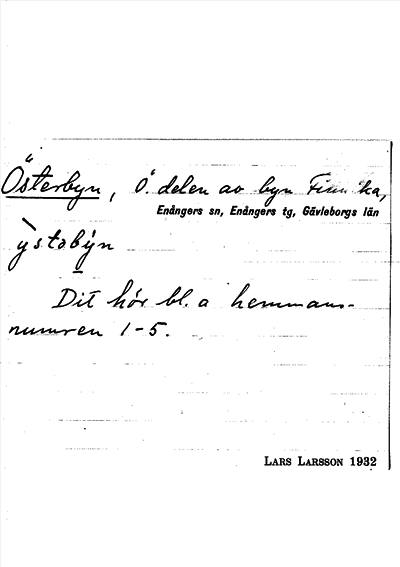 Österbyn, Ö. delen av byn
Enångers sn, Enångers tg, Gävleborgs län
ỳstobýn
Dit hör bl.a hemmans-
numren 1-5.
LARS LARSSON 1932